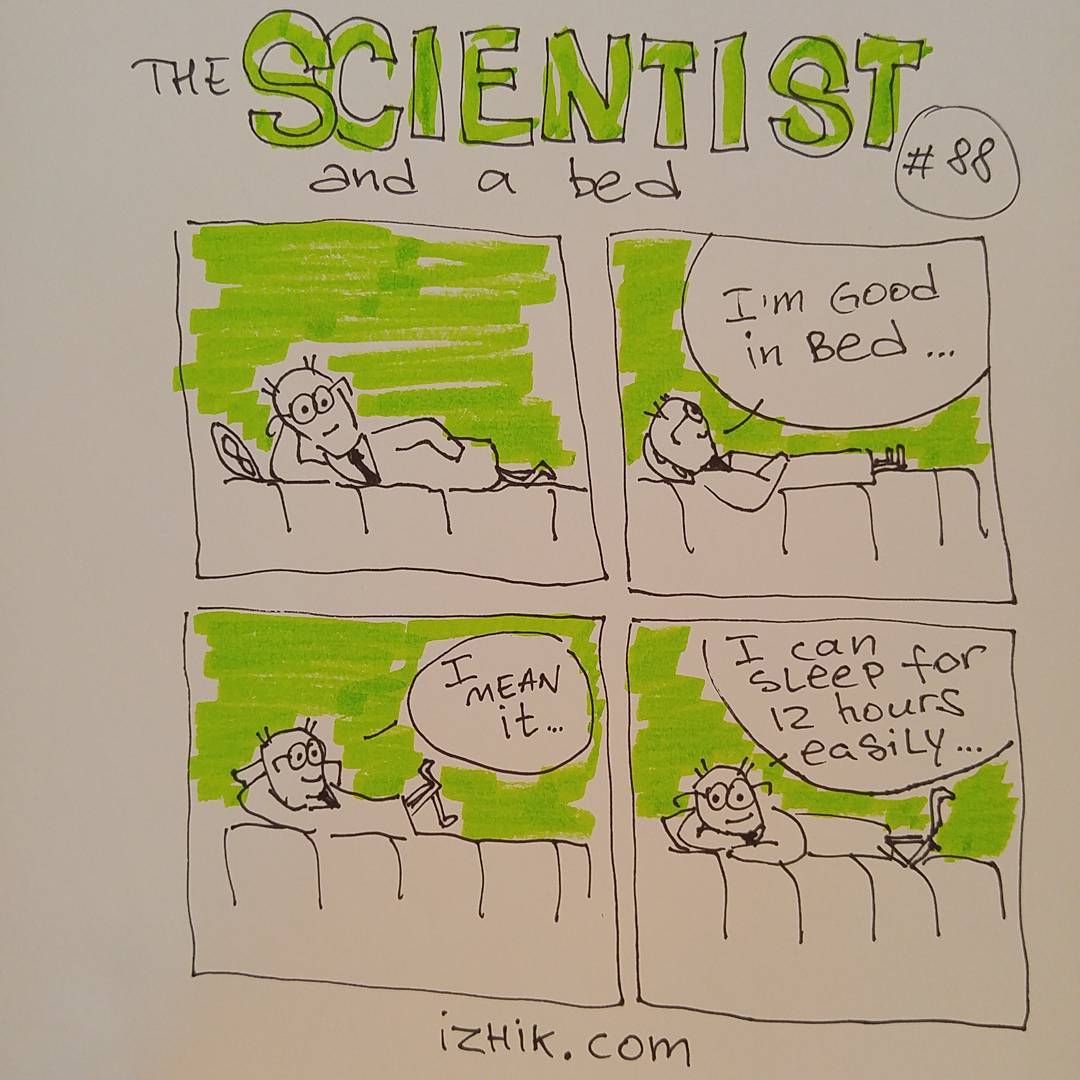 THE SCIENTIST
#88
and a bed
I'm GOOD
in Bed...
I
MEAN
it...
I can
SLEEP for
12 hours
easily...
izHik.com